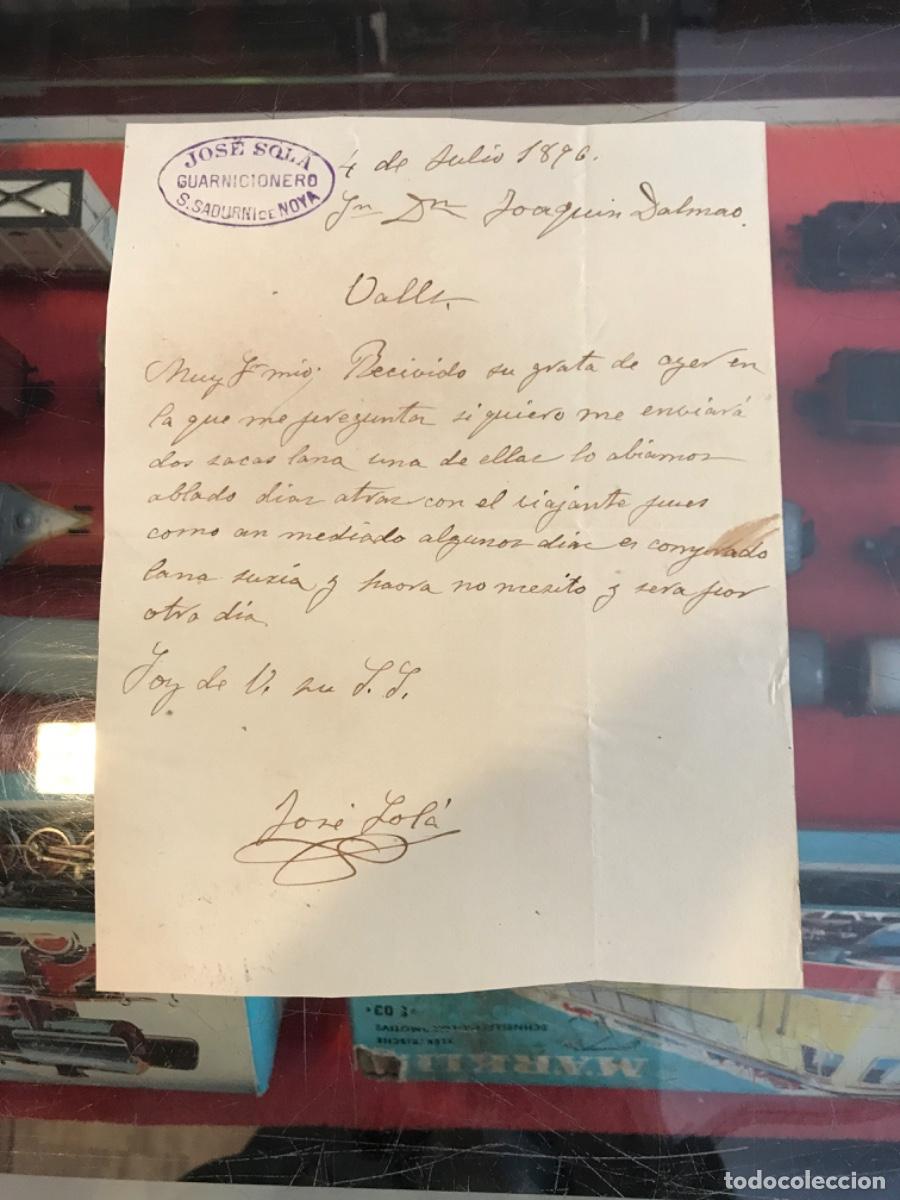 JOSÉ SOLÁ
GUARNICIONERO
S. SADURNI DE NOYA
4 de Julio 1896.
Sn Dn Joaquin Dalmao.
Valls
Muy Sr mio; Recivido su grata de ayer en
la que me pregunta si quiero me enviará
dos sacas lana una de ellas lo abiamos
ablado dias atras con el viajante pues
como an mediado algunos dias e comprado
lana suzia y haora no nesito y sera por
otro dia
Soy de V. su S. S.
José Solá
MARKLIN
ELEKTRISCHE
todocoleccion